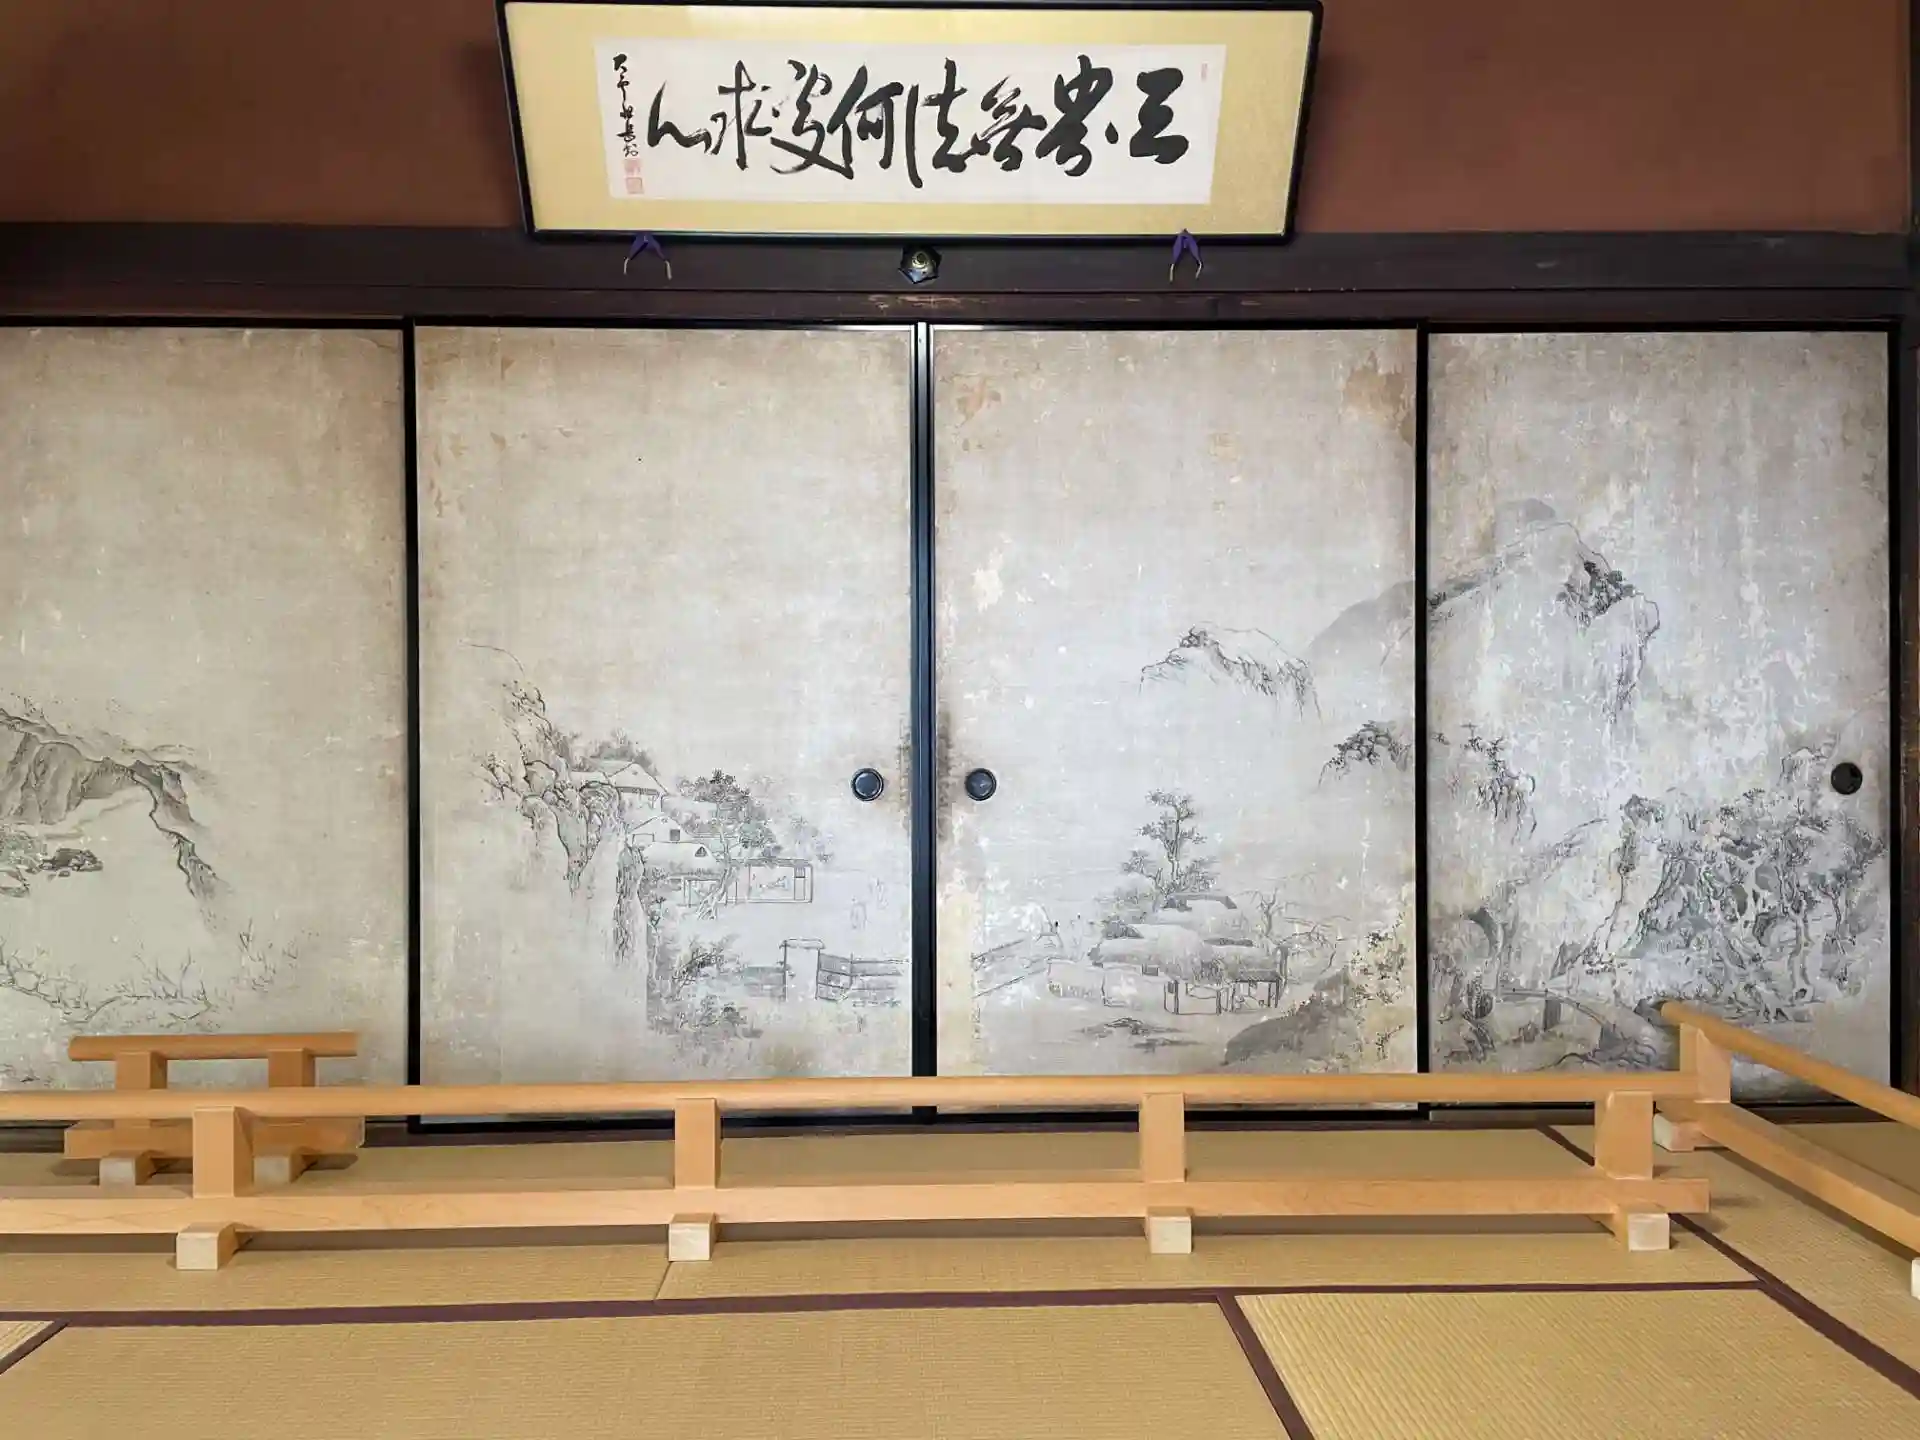 三界無法何処求心